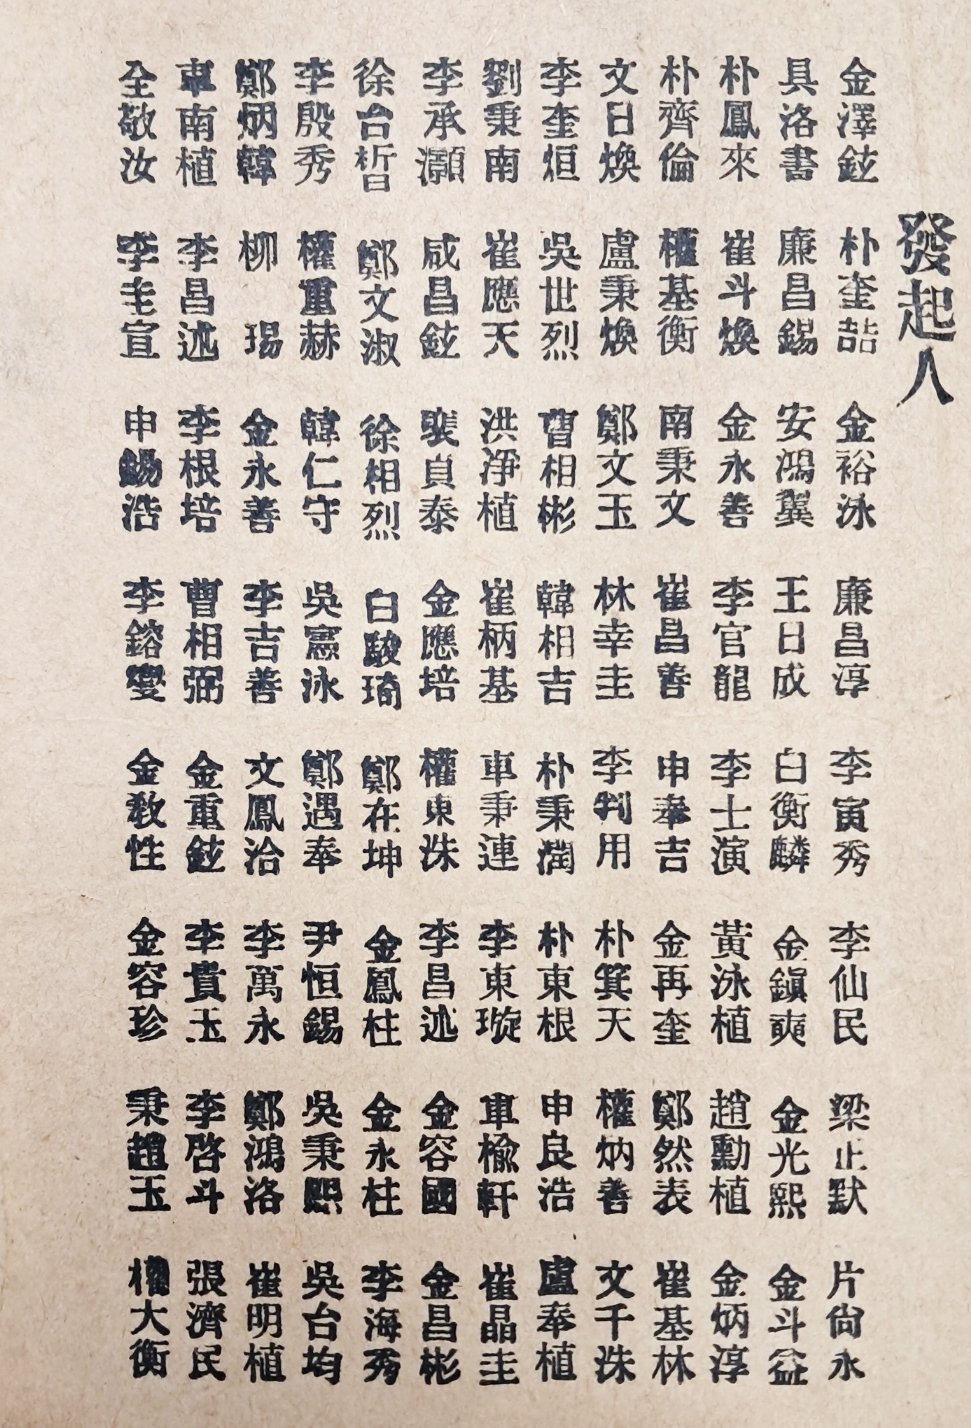 發起人
金澤鉉 朴奎喆 金裕泳 廉昌淳 李寅秀 李仙民 梁正默 片尙永
具洛書 廉昌錫 安鴻翼 王日成 白衡麟 金鎭奭 金光熙 金斗益
朴鳳來 崔斗煥 金永善 李官龍 李士演 黃泳植 趙勳植 金炳淳
朴齊倫 權基衡 南秉文 崔昌善 申奉吉 金再奎 鄭然表 崔基林
文日煥 盧秉煥 鄭文玉 林幸圭 李判用 朴箕天 權炳善 文千洙
李奎烜 吳世烈 曹相彬 韓相吉 朴秉潤 朴東根 申良浩 盧奉植
劉秉南 崔應天 洪淨植 崔柄基 車秉連 李東璇 車楡軒 崔晶圭
李承灝 咸昌鉉 裴貞泰 金應培 權東洙 李昌述 金容國 金昌彬
徐台晳 鄭文淑 徐相烈 白駿琦 鄭在坤 金鳳柱 金永柱 李海秀
李殷秀 權重赫 韓仁守 吳憲泳 鄭遇奉 尹恒錫 吳秉熙 吳台均
鄭炳韓 柳瑒 金永善 李吉善 文鳳洽 李萬永 鄭鴻洛 崔明植
車南植 李昌述 李根培 曹相弼 金重鉉 李貴玉 李啓斗 張濟民
全敬汝 李圭宣 申錫浩 李鎔燮 金敎性 金容珍 秉趙玉 權大衡